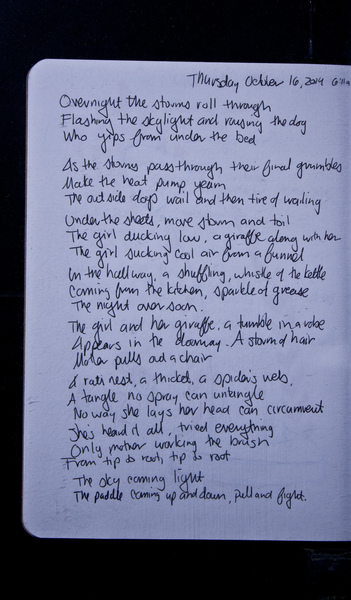 Thursday October 16, 2014
Overnight the storms roll through
Flashing the skylight and rousing the dog
Who yips from under the bed
As the storms pass through their final grumbles
Make the heat pump yearn
The outside dogs wail and then tire of wailing
Under the sheets, more storm and toil
The girl ducking low, a giraffe along with her
The girl sucking cool air from a funnel
In the hallway, a shuffling, whistle of the kettle
Coming from the kitchen, sparkle of grease
The night over soon.
The girl and her giraffe, a tumble in a robe
Appears in the doorway. A storm of hair
Mother pulls out a chair
A rats nest, a thicket, a spider's web,
A tangle no spray can untangle
No way she lays her head can circumvent
She's heard it all, tried everything
Only mother working the brush
From tip to root, tip to root
The sky coming light
The paddle coming up and down, pull and fight.